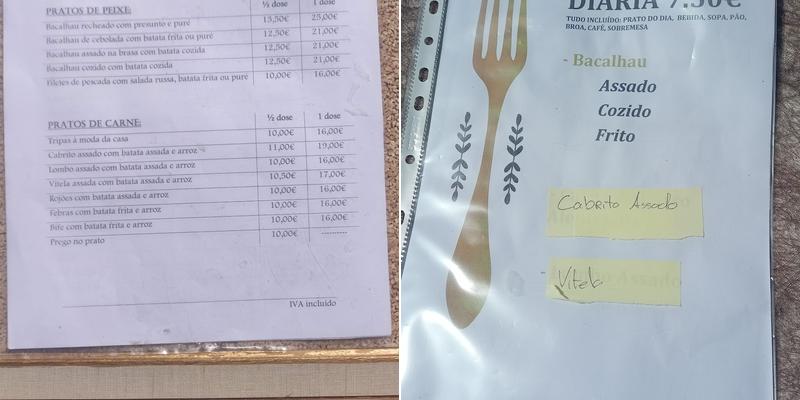 PRATOS DE PEIXE: ½ dose 1 dose
Bacalhau recheado com presunto e puré 13,50€ 25,00€
Bacalhau de cebolada com batata frita ou puré 12,50€ 21,00€
Bacalhau assado na brasa com batata cozida 12,50€ 21,00€
Bacalhau cozido com batata cozida 12,50€ 21,00€
Filetes de pescada com salada russa, batata frita ou puré 10,00€ 16,00€
PRATOS DE CARNE: ½ dose 1 dose
Tripas à moda da casa 10,00€ 16,00€
Cabrito assado com batata assada e arroz 11,00€ 19,00€
Lombo assado com batata assada e arroz 10,00€ 16,00€
Vitela assada com batata assada e arroz 10,50€ 17,00€
Rojões com batata assada e arroz 10,00€ 16,00€
Febras com batata frita e arroz 10,00€ 16,00€
Bife com batata frita e arroz 10,00€ 16,00€
Prego no prato 10,00€ ----------
IVA incluído
DIÁRIA 7.50€
TUDO INCLUÍDO: PRATO DO DIA, BEBIDA, SOPA, PÃO,
BROA, CAFÉ, SOBREMESA
- Bacalhau
Assado
Cozido
Frito
Cabrito Assado
Vitela